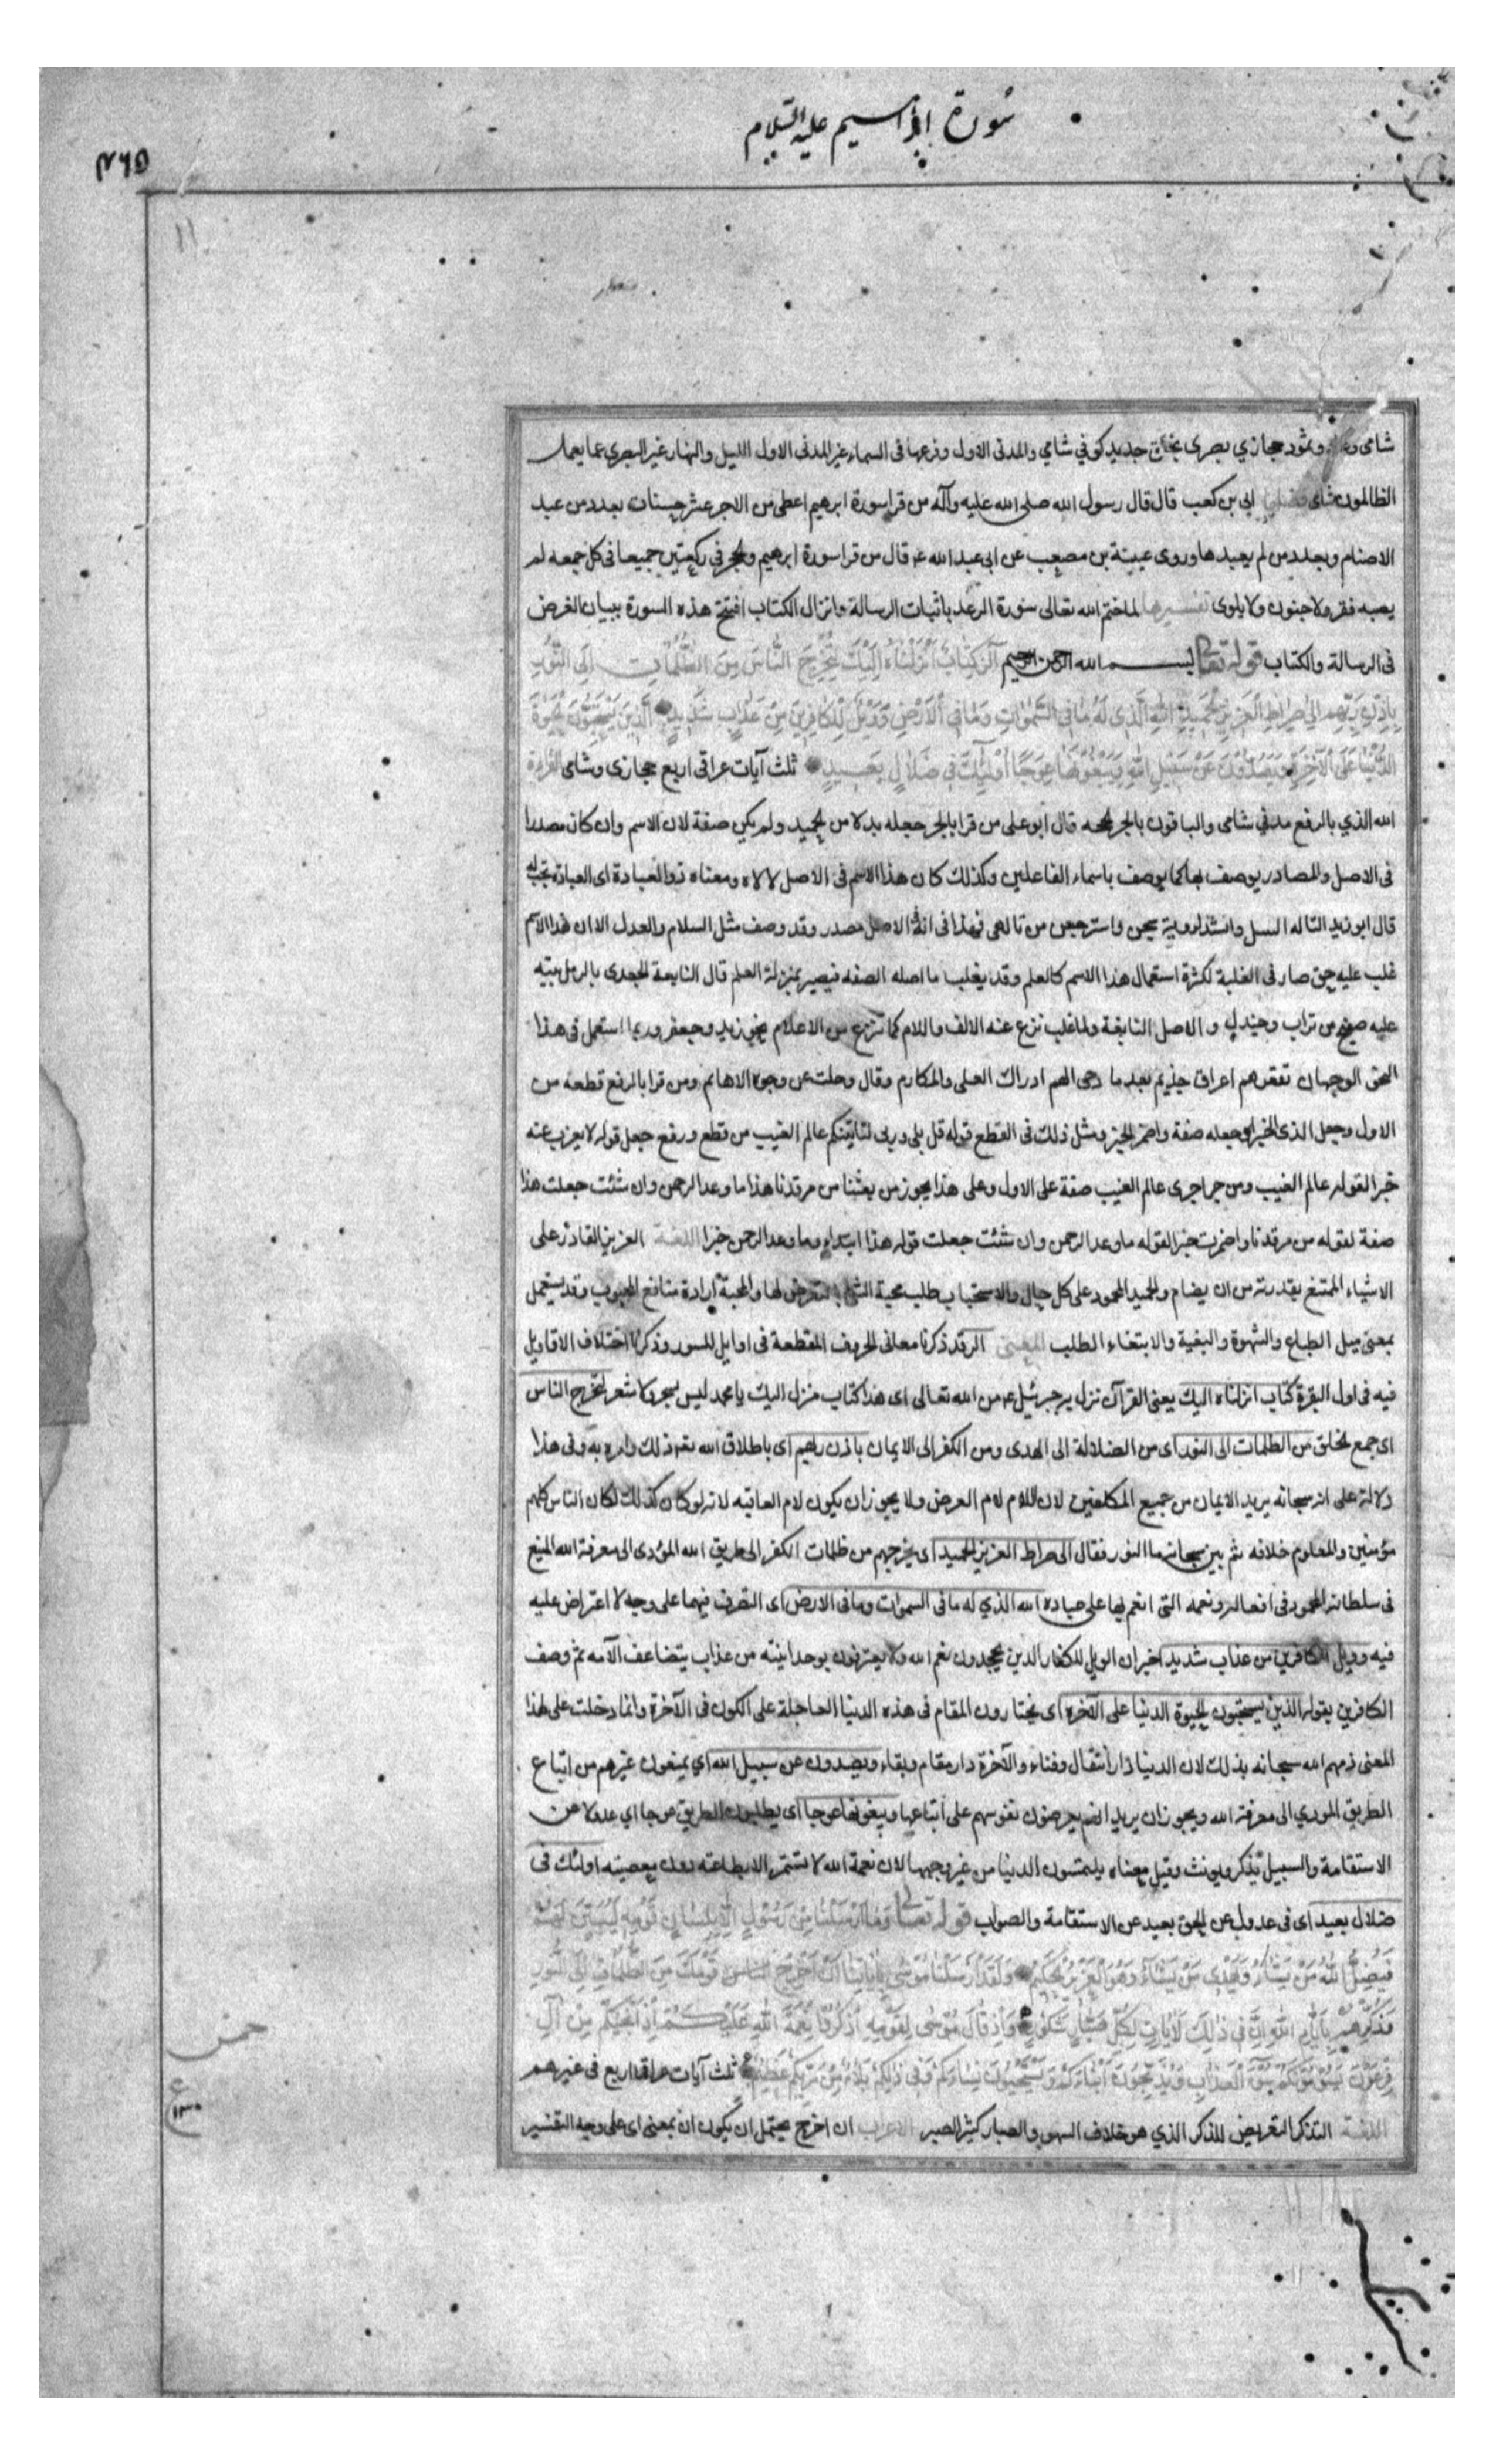 سورة ابراهيم عليه السلام
٤٦٥
شامى وعاد وثمود حجازي بصرى بخلق جديد كوفي شامي والمدنى الاول وفرعها فى السماء غير المدنى الاول الليل والنهار غير البصرى عما يعمل
الظالمون شامى فضلها ابى بن كعب قال قال رسول الله صلى الله عليه وآله من قرا سورة ابرهيم اعطى من الاجر عشر حسنات بعدد من عبد
الاصنام وبعدد من لم يعبدها وروى عيينة بن مصعب عن ابى عبد الله ع قال من قرا سورة ابرهيم والحجر فى ركعتين جميعا فى كل جمعه لم
يصبه فقر ولا جنون ولا بلوى تفسيرها لما ختم الله تعالى سورة الرعد باثبات الرسالة وانزال الكتاب افتتح هذه السورة ببيان الغرض
فى الرسالة والكتاب قوله تعالى بسم الله الرحمن الرحيم الر كتاب انزلناه اليك لتخرج الناس من الظلمات الى النور
باذن ربهم الى صراط العزيز الحميد الله الذى له ما فى السموات وما فى الارض وويل للكافرين من عذاب شديد الذين يستحبون الحيوة
الدنيا على الآخرة ويصدون عن سبيل الله ويبغونها عوجا اولئك فى ضلال بعيد ثلث آيات عراقى اربع حجازى وشامى القراءة
الله الذي بالرفع مدني شامى والباقون بالجر الحجه قال ابو على من قرا بالجر جعله بدلا من الحميد ولم يكن صفة لان الاسم وان كان مصدرا
فى الاصل والمصادر يوصف بها كما يوصف باسماء الفاعلين وكذلك كان هذا الاسم فى الاصل لالاه ومعناه ذو العبادة اى العبادة تجب له
قال ابو زيد التاله وانشد لروبة من تالهى فهذا فى انه الاصل مصدر وقد وصف مثل السلام والعدل الا ان هذا الاسم
غلب عليه حتى صار فى الغلبة لكثرة استعمال هذا الاسم كالعلم وقد يغلب ما اصله الصفه فيصير بمنزلة العلم قال النابغة الجعدى بالرمل بيته
عليه من تراب وجندل والاصل النابغة ولما غلب نزع عنه الالف واللام كما تنزع من الاعلام نحو زيد وجعفر وربما استعمل فى هذا
النحو الوجهان ادراك العلى والمكارم وقال وحلت عن وجوه الاهاتم ومن قرا بالرفع قطعه من
الاول وجعل الذى الخبر او جعله صفة واضمر الخبر ومثل ذلك فى القطع قوله قل بلى وربى لتاتينكم عالم الغيب من قطع ورفع جعل قوله لا يعزب عنه
خبرا لقوله عالم الغيب ومن جر اجرى عالم الغيب صفة على الاول وعلى هذا يجوز من بعثنا من مرقدنا هذا ما وعد الرحمن وان شئت جعلت هذا
صفة لقوله من مرقدنا واضمرت خبرا لقوله ما وعد الرحمن وان شئت جعلت قوله هذا ابتداء وما وعد الرحمن خبرا اللغة العزيز القادر على
الاشياء الممتنع بقدرته من ان يضام والحميد المحمود على كل حال والاستحباب طلب محبة الشئ بالتعرض لها والمحبة ارادة منافع المحبوب وقد يستعمل
بمعنى ميل الطباع والشهوة والبغية والابتغاء الطلب المعنى الر قد ذكرنا معانى الحروف المقطعة فى اوايل السور وذكرنا اختلاف الاقاويل
فيه فى اول البقرة كتاب انزلناه اليك يعنى القرآن نزل به جبرئيل ع من الله تعالى اى هذا كتاب منزل اليك يا محمد ليس بسحر ولا شعر لتخرج الناس
اى جمع الخلق من الظلمات الى النور اى من الضلالة الى الهدى ومن الكفر الى الايمان باذن ربهم اى باطلاق الله ذلك وامره به وفى هذا
دلالة على انه سبحانه يريد الايمان من جميع المكلفين لان اللام لام الغرض ولا يجوز ان يكون لام العاقبه لانه لو كان كذلك لكان الناس كلهم
مؤمنين والمعلوم خلافه ثم بين سبحانه ما النور فقال الى صراط العزيز الحميد اى يخرجهم من ظلمات الكفر الى طريق الله المؤدى الى معرفة الله المنيع
فى سلطانه المحمود فى افعاله ونعمه التى انعم بها على عباده الله الذي له ما فى السموات وما فى الارض اى التصرف فيهما على وجه لا اعتراض عليه
فيه وويل للكافرين من عذاب شديد اخبر ان الويل للكفار الذين يجحدون نعم الله ولا يعترفون بوحدانيته من عذاب يتضاعف آلامه ثم وصف
الكافرين بقوله الذين يستحبون الحيوة الدنيا على الآخرة اى يختارون المقام فى هذه الدنيا العاجلة على الكون فى الآخرة وانما دخلت على هذا
المعنى ذمهم الله سبحانه بذلك لان الدنيا دار انتقال وفناء والآخرة دار مقام وبقاء ويصدون عن سبيل الله اي يمنعون غيرهم من اتباع
الطريق المودي الى معرفة الله ويجوز ان يريد انهم يعرضون نفوسهم على اتباعها ويبغونها عوجا اى يطلبون الطريق عوجا اي عدولا عن
الاستقامة والسبيل يذكر ويونث وقيل معناه يلتمسون الدنيا من غير وجهها لان نعمة الله لا تستمر الا بطاعته دون معصيته اولئك فى
ضلال بعيد اى فى عدول عن الحق بعيد عن الاستقامة والصواب قوله تعالى وما ارسلنا من رسول الا بلسان قومه ليبين لهم
فيضل الله من يشاء ويهدى من يشاء وهو العزيز الحكيم ولقد ارسلنا موسى بآياتنا ان اخرج الناس قومك من الظلمات الى النور
وذكرهم بايام الله ان فى ذلك لآيات لكل صبار شكور واذ قال موسى لقومه اذكروا نعمة الله عليكم اذ انجيكم من آل
فرعون يسومونكم سوء العذاب ويذبحون ابناءكم ويستحيون نساءكم وفى ذلكم بلاء من ربكم عظيم ثلث آيات عراقى اربع فى غيرهم
اللغة التذكر التعريض للذكر الذي هو خلاف السهو والصبار كثير الصبر الاعراب ان اخرج يحتمل ان يكون ان بمعنى اى على وجه التفسير